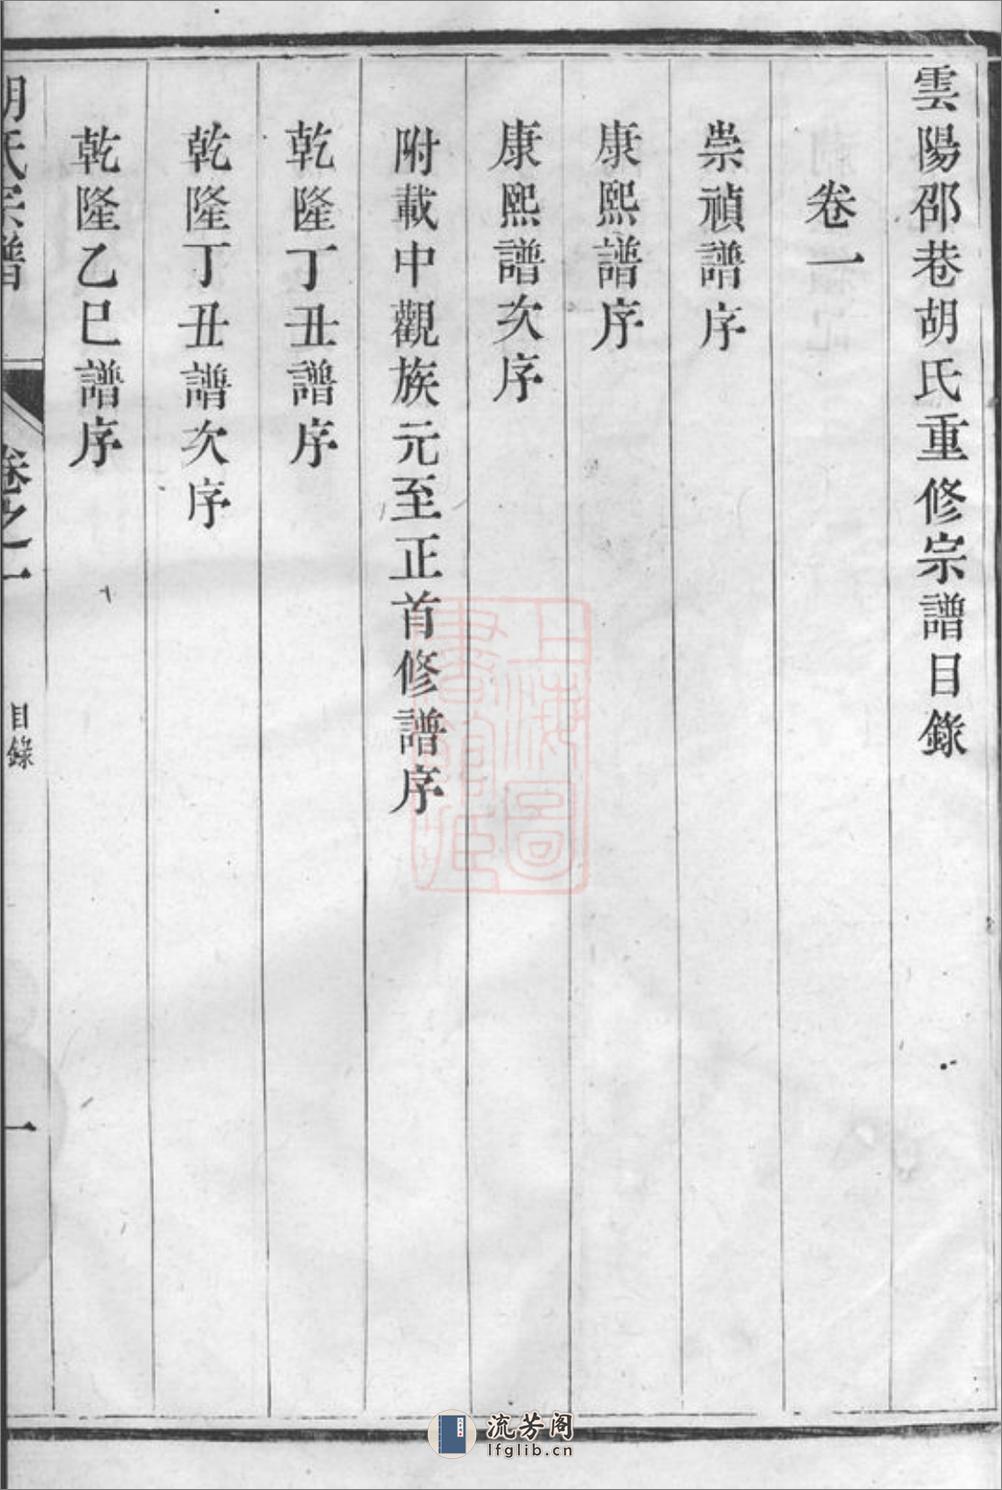 雲陽邵巷胡氏重修宗譜目錄
卷一
崇禎譜序
康熙譜序
康熙譜次序
附載中觀族元至正首修譜序
乾隆丁丑譜序
乾隆丁丑譜次序
乾隆乙巳譜序
胡氏宗譜
卷之一
目錄
一
上海圖書館藏
流芳阁
lfglib.cn